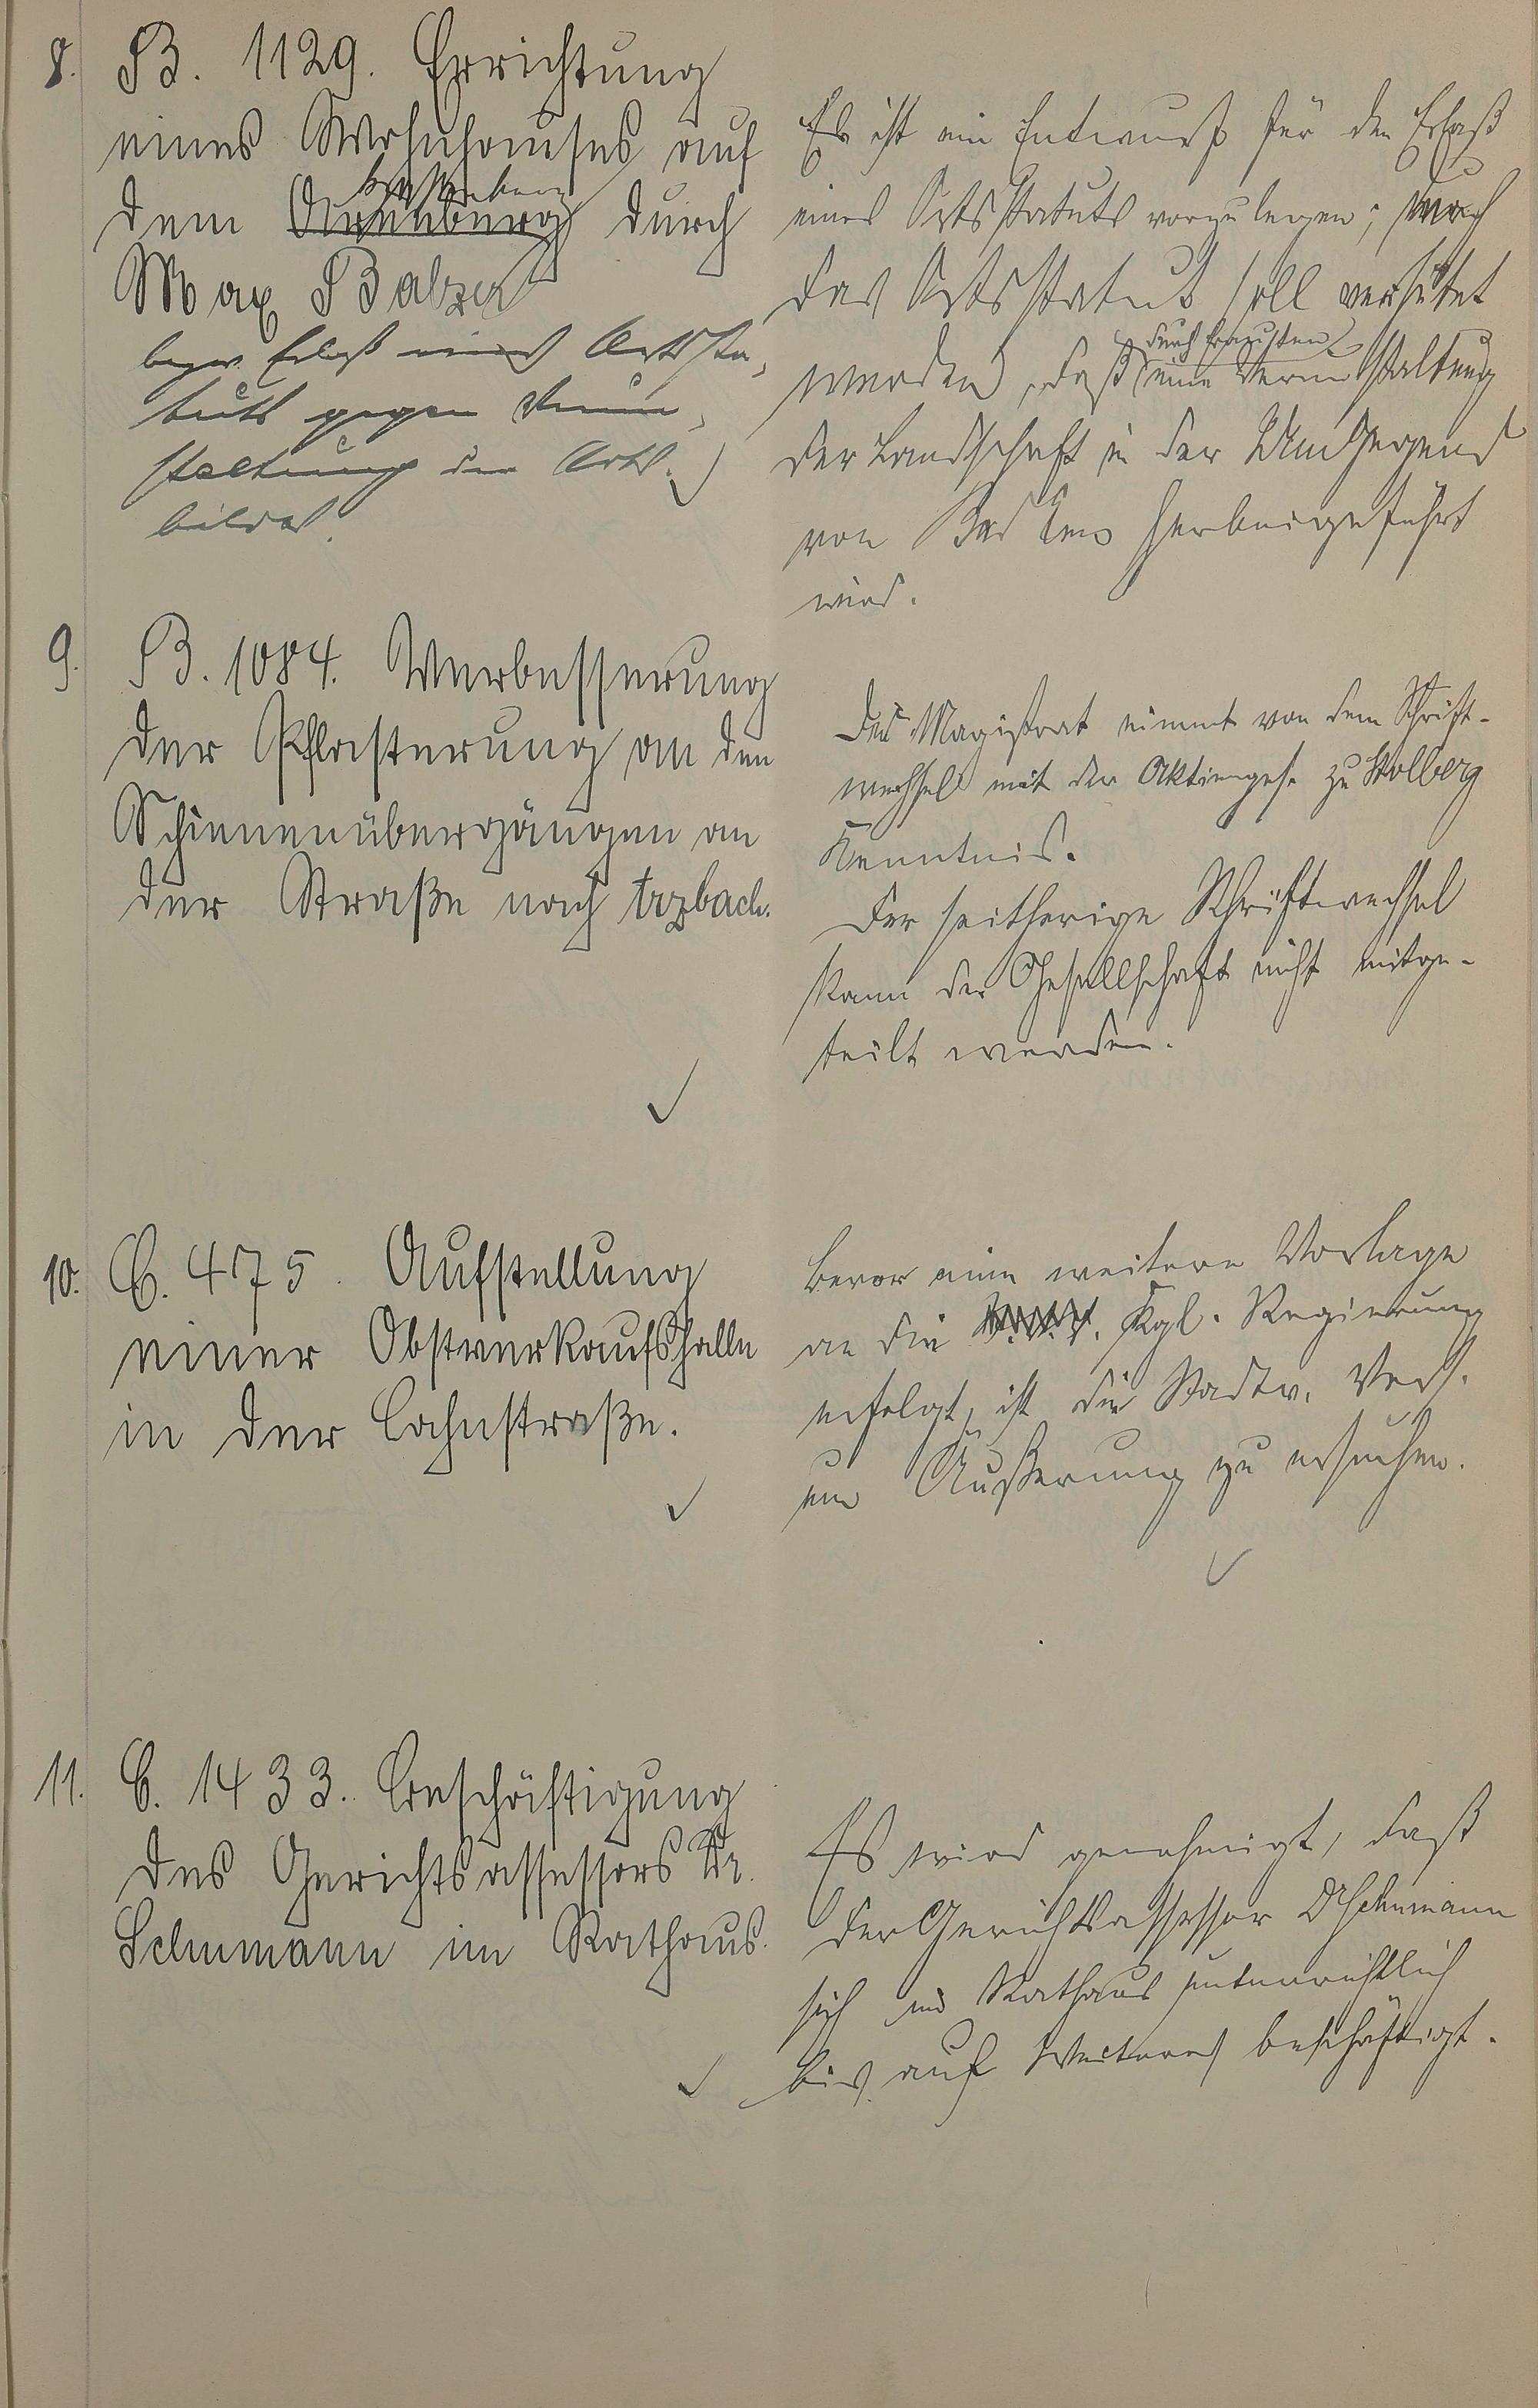 8. B. 1129. Errichtung
eines Wohnhauses auf
dem durch
Max Balzer
bezw. Erlaß eines Ortssta-
tuts gegen Verun-
staltung des Orts-
bildes.
Es ist ein Entwurf für den Erlaß
eines Ortsstatuts vorzulegen; durch
das Ortsstatut soll verhütet
werden, daß eine Verunstaltung
der Landschaft in der Umgegend
von Bad Ems herbeigeführt
wird.
9. B. 1084. Verbesserung
der Pflasterung an den
Schienenübergängen an
der Straße nach Arzbach.
Der Magistrat nimmt von dem Schrift-
wechsel mit der Aktienges. zu Stolberg
Kenntnis.
Der seitherige Schriftwechsel
kann der Gesellschaft nicht mitge-
teilt werden.
10. C. 475. Aufstellung
einer Obstverkaufshalle
in der Lahnstraße.
Bevor eine weitere Vorlage
an die Kgl. Regierung
erfolgt, ist die Stadtv. Vers.
um Äußerung zu ersuchen.
11. C. 1433. Beschäftigung
des Gerichtsassessors Dr.
Schumann im Rathaus.
Es wird genehmigt, daß
der Gerichtsassessor Dr Schumann
sich im Rathaus
bis auf Weiteres beschäftigt.